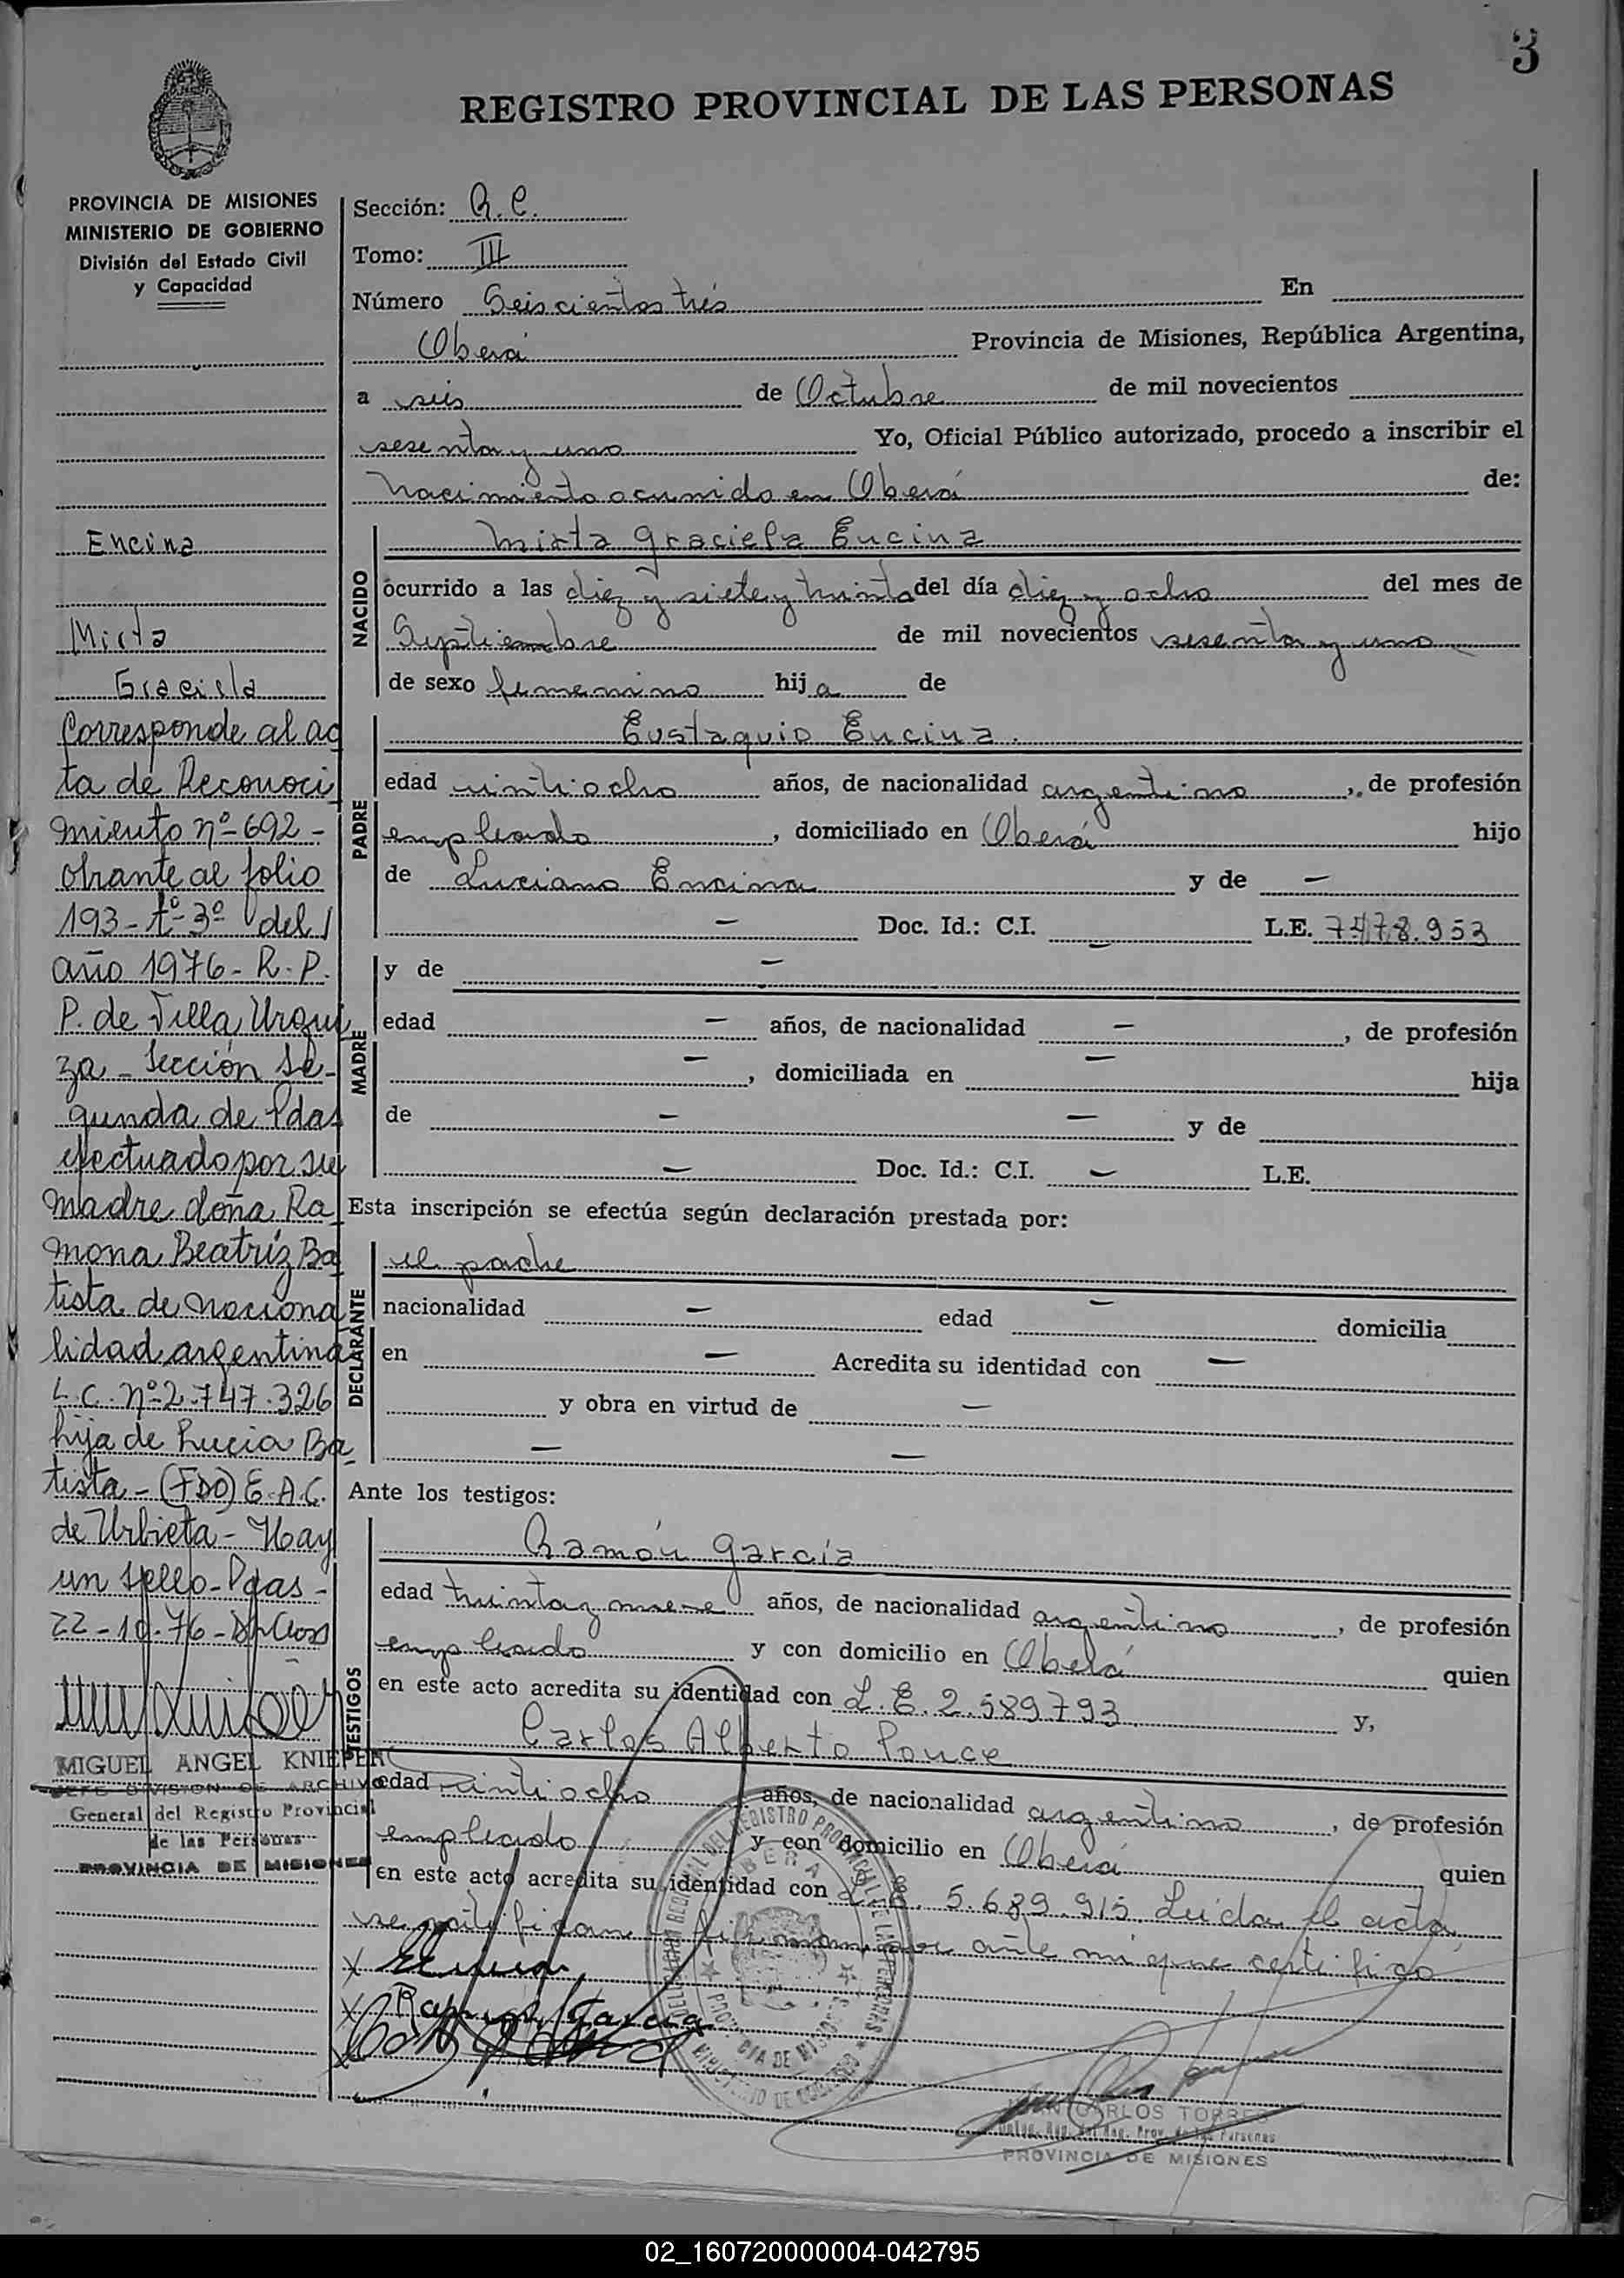 3
REGISTRO PROVINCIAL DE LAS PERSONAS
PROVINCIA DE MISIONES
MINISTERIO DE GOBIERNO
División del Estado Civil
y Capacidad
Encina
Mirta
Graciela
Corresponde al ac
ta de Reconoci
miento nº 692 -
obrante al folio
193 - tº 3º del
año 1976 - R. P.
P. de Villa Urqui
za - Sección Se-
gunda de Pdas
efectuado por su
madre doña Ra
mona Beatriz Ba
tista de naciona
lidad argentina
L.C. nº 2.747.326
hija de Lucia Ba
tista - (FDO) E.A.C.
de Urbieta - Hay
un sello - Pdas -
22-10-76 -
MIGUEL ANGEL KNIEPER
JEFE DIVISION DE ARCHIVO
General del Registro Provincial
de las Personas
PROVINCIA DE MISIONES
Sección: R. C.
Tomo: III
Número Seiscientos tres En
Oberá Provincia de Misiones, República Argentina,
a seis de Octubre de mil novecientos
sesenta y uno Yo, Oficial Público autorizado, procedo a inscribir el
Nacimiento ocurrido en Oberá de:
NACIDO
Mirta Graciela Encina
ocurrido a las diez y siete y treinta del día diez y ocho del mes de
Septiembre de mil novecientos sesenta y uno
de sexo femenino hija de
PADRE
Eustaquio Encina.
edad veintiocho años, de nacionalidad argentino, de profesión
empleado, domiciliado en Oberá hijo
de Luciano Encina y de —
— Doc. Id.: C.I. — L.E. 7478.953
MADRE
y de —
edad — años, de nacionalidad —, de profesión
—, domiciliada en — hija
de — — y de
— Doc. Id.: C.I. — L.E.
Esta inscripción se efectúa según declaración prestada por:
DECLARANTE
el padre
nacionalidad — edad — domicilia
en — Acredita su identidad con —
y obra en virtud de —
— —
Ante los testigos:
TESTIGOS
Ramón García
edad treinta y nueve años, de nacionalidad argentino, de profesión
empleado y con domicilio en Oberá quien
en este acto acredita su identidad con L.E. 2.589793 y,
Carlos Alberto Ponce
edad veintiocho años, de nacionalidad argentino, de profesión
empleado y con domicilio en Oberá quien
en este acto acredita su identidad con L.E. 5.689.915. Leída el acta
se ratifican firmando por ante mi que certifico
Ramón García
DEL REGISTRO PROVINCIAL DE LAS PERSONAS
OBERA
PROVINCIA DE MISIONES
MINISTERIO DE GOBIERNO
JUAN CARLOS TORRES
Reg. Prov. de las Personas
PROVINCIA DE MISIONES
02_160720000004-042795